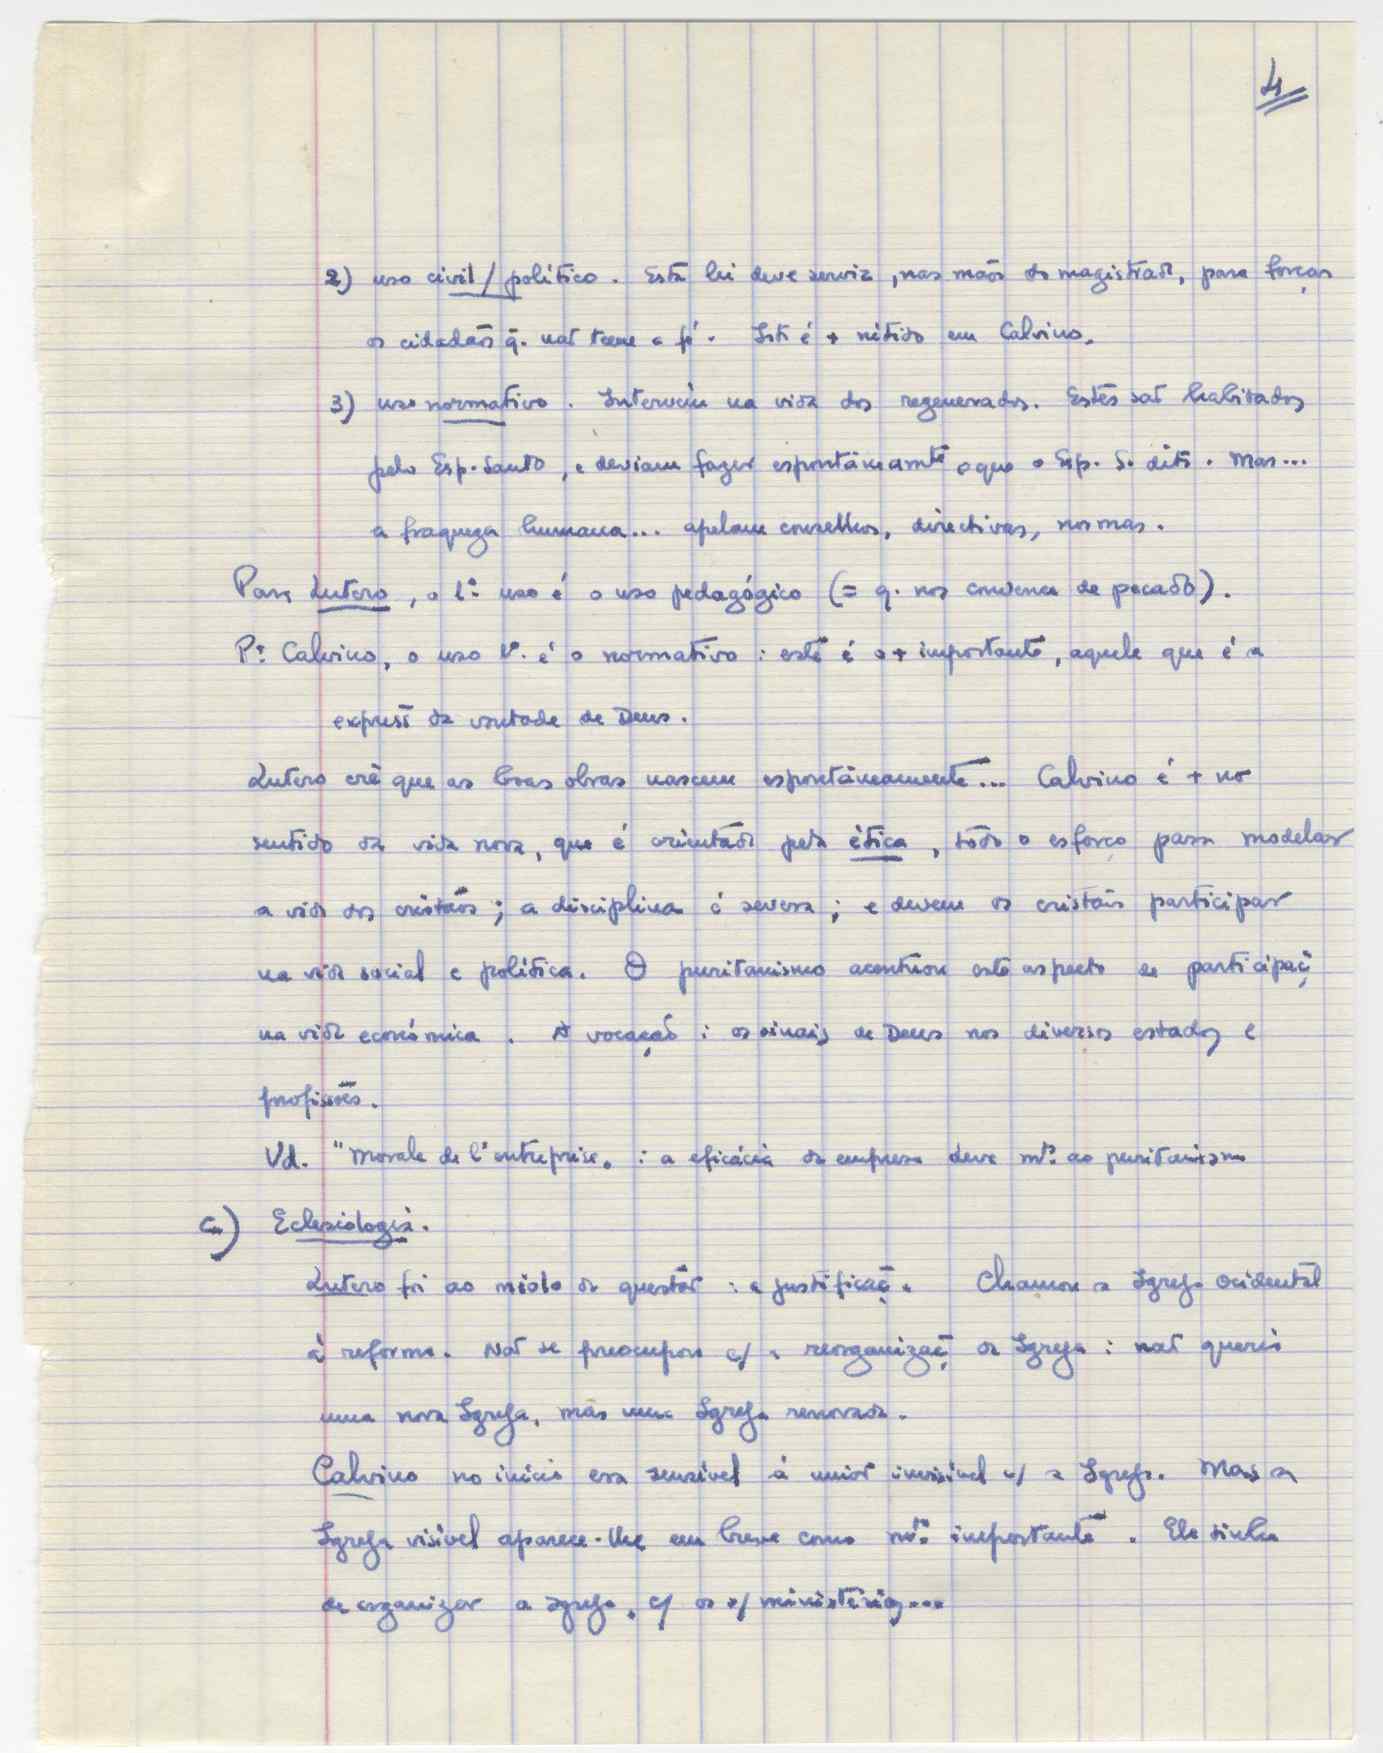 4
2) uso civil / político. Esta lei deve servir, nas mãos do magistrado, para forçar
os cidadãos q. não têem a fé. Isto é + nítido em Calvino.
3) uso normativo. Intervém na vida dos regenerados. Estes são habitados
pelo Esp. Santo, e deviam fazer espontâneamte o que o Esp. S. dita. Mas...
a fraqueza humana... apelam conselhos, directivas, normas.
Para Lutero, o 1º uso é o uso pedagógico (= q. nos convence de pecado).
Pª Calvino, o uso 1º é o normativo: este é o + importante, aquele que é a
expressã da vontade de Deus.
Lutero crê que as boas obras nascem espontâneamente... Calvino é + no
sentido da vida nova, que é orientada pela ética, todo o esforço para modelar
a vida dos cristãos; a disciplina é severa; e devem os cristãos participar
na vida social e política. O puritanismo acentuou este aspecto de participaç̃
na vida económica. A vocação: os sinais de Deus nos diversos estados e
profissões.
Vd. "Morale de l'entreprise" : a eficácia da empresa deve mtº ao puritanismo
c) Eclesiologia.
Lutero foi ao miolo da questão: a justificaç̃. Chamou a Igreja ocidental
à reforma. Não se preocupou c/ a reorganizaç̃ da Igreja: não queria
uma nova Igreja, mas uma Igreja renovada.
Calvino no início era sensível à união invisível c/ a Igreja. Mas a
Igreja visível aparece-lhe em breve como mtº importante. Ele tinha
de organizar a Igreja, c/ os s/ ministérios...